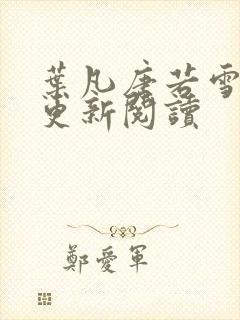 葉凡唐若雪
更新閱讀
鄭愛軍